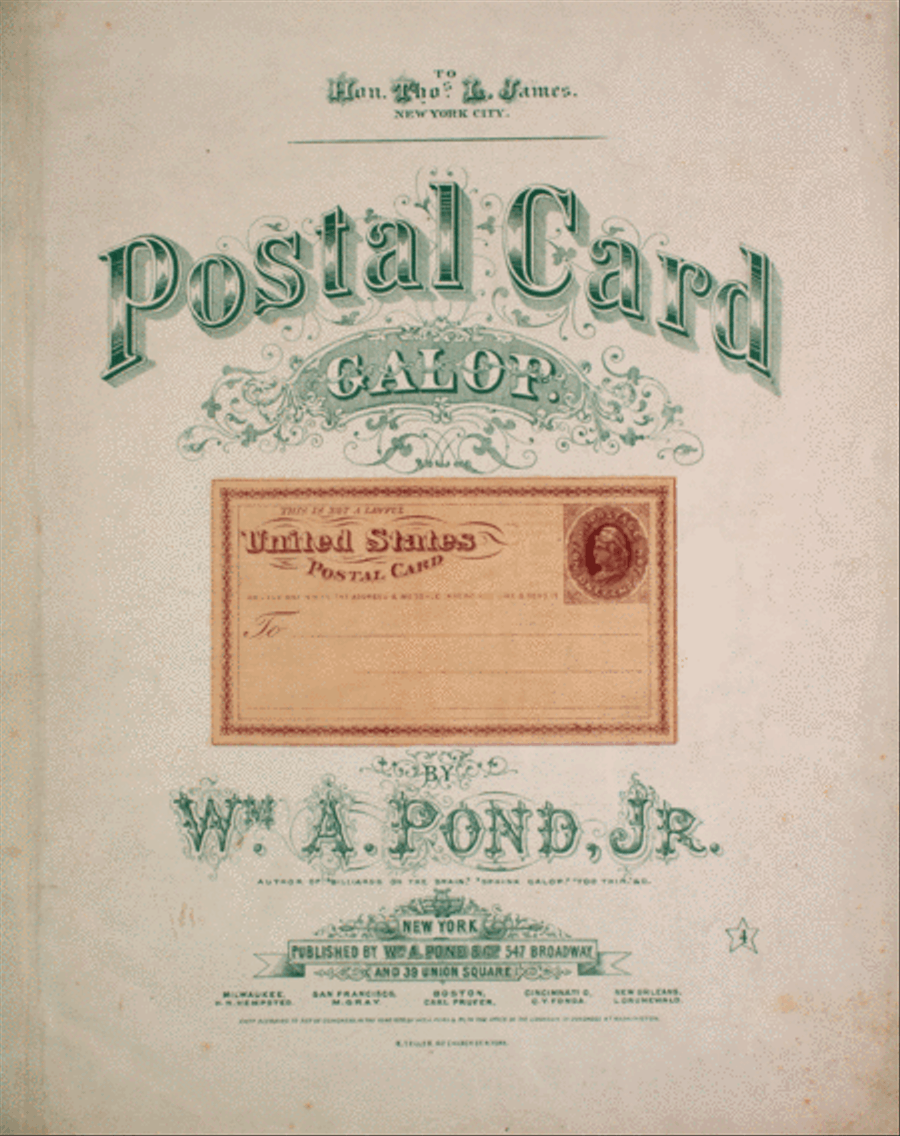 TO
Hon. Thos. L. James.
NEW YORK CITY.
Postal Card
GALOP.
THIS IS NOT A LAWFUL
United States
POSTAL CARD
THE ADDRESS &
To
BY
WM. A. POND, JR.
AUTHOR OF "BILLIARDS ON THE BRAIN," "SPHINX GALOP," "TOO THIN," &C.
NEW YORK
PUBLISHED BY WM. A. POND & CO. 547 BROADWAY
AND 39 UNION SQUARE
MILWAUKEE. SAN FRANCISCO. BOSTON. CINCINNATI O. NEW ORLEANS.
H.N. HEMPSTED. M. GRAY. CARL PRUFER. C.Y. FONDA. L. GRUNEWALD.
4